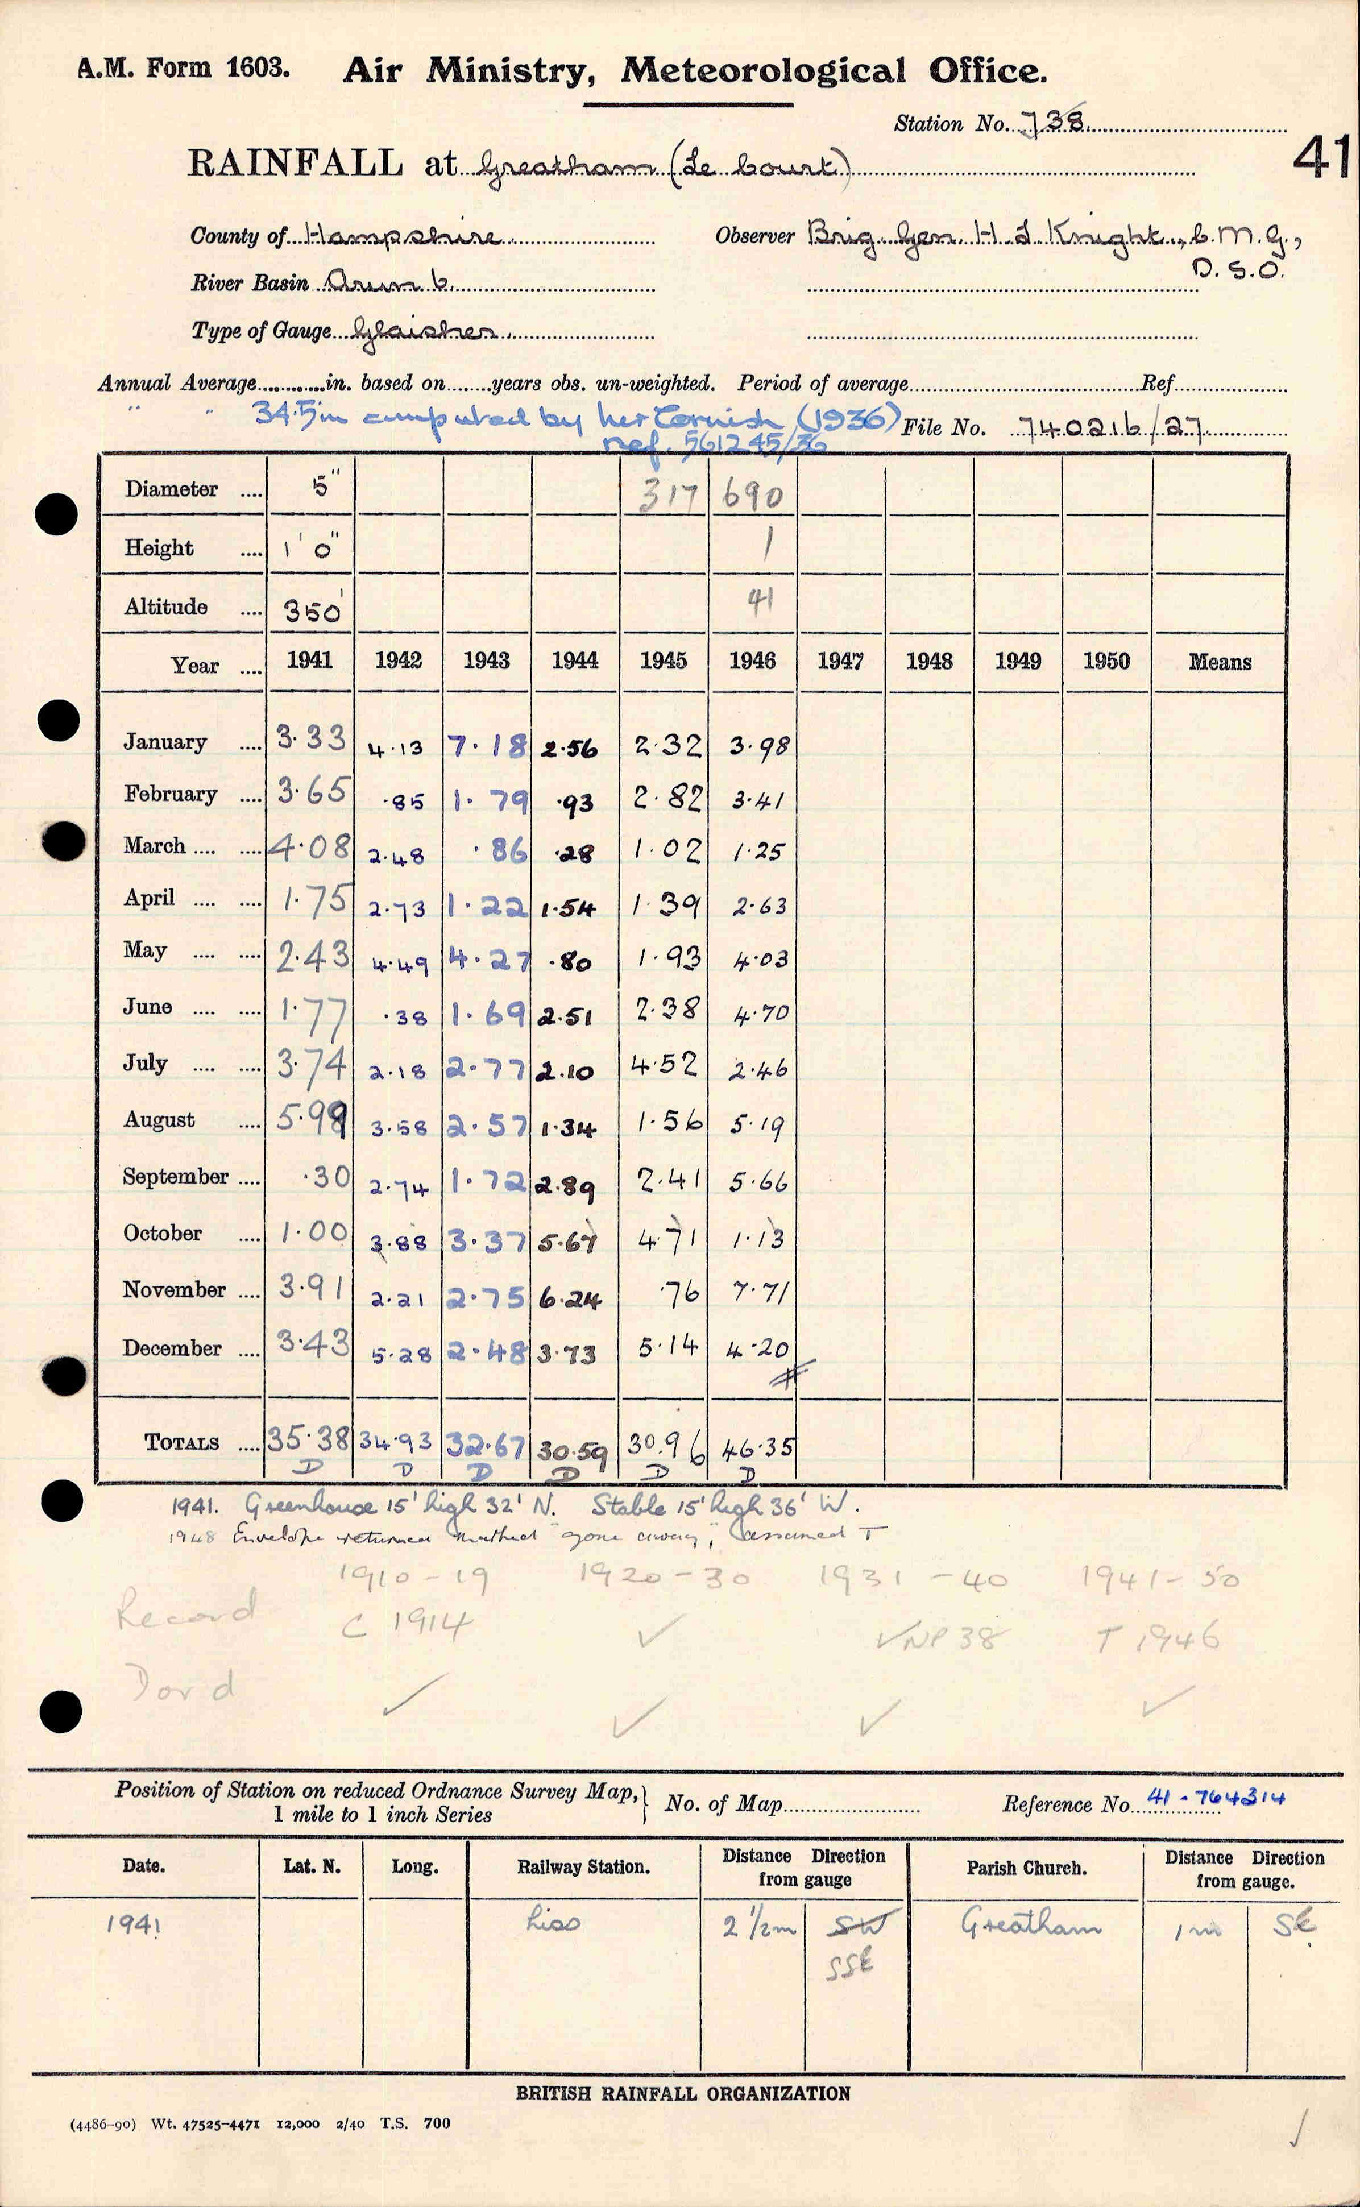 A.M. Form 1603. Air Ministry, Meteorological Office.
Station No. 738
41
RAINFALL at Greatham (Le Court)
County of Hampshire Observer Brig. Gen. H L Knight., C.M.G., D.S.O.
River Basin Arun 6.
Type of Gauge Glaisher.
Annual Average in. based on years obs. un-weighted. Period of average Ref
" " 34.5in computed by Cornish (1936) File No. 740216/27
ref. 561245/36
Diameter .... 5" 317 690
Height .... 1' 0" 1
Altitude .... 350' 41
Year .... 1941 1942 1943 1944 1945 1946 1947 1948 1949 1950 Means
January .... 3.33 4.13 7.18 2.56 2.32 3.98
February .... 3.65 .85 1.79 .93 2.82 3.41
March .... .... 4.08 2.48 .86 .28 1.02 1.25
April .... .... 1.75 2.73 1.22 1.54 1.39 2.63
May .... .... 2.43 4.49 4.27 .80 1.93 4.03
June .... .... 1.77 .38 1.69 2.51 2.38 4.70
July .... .... 3.74 2.18 2.77 2.10 4.52 2.46
August .... 5.99 3.58 2.57 1.34 1.56 5.19
September .... .30 2.74 1.72 2.89 2.41 5.66
October .... 1.00 3.88 3.37 5.67 4.71 1.13
November .... 3.91 2.21 2.75 6.24 .76 7.71
December .... 3.43 5.28 2.48 3.73 5.14 4.20
TOTALS .... 35.38 34.93 32.67 30.59 30.96 46.35
D D D D D D
1941. Greenhouse 15' high 32' N. Stable 15' high 36' W.
1948 Envelope returned marked "gone away", assumed T
1910-19 1920-30 1931-40 1941-50
Record C 1914 ✓ ✓NP 38 T 1946
D or d ✓ ✓ ✓ ✓
Position of Station on reduced Ordnance Survey Map,} No. of Map Reference No. 41-764314
1 mile to 1 inch Series
Date. Lat. N. Long. Railway Station. Distance Direction from gauge Parish Church. Distance Direction from gauge.
1941 Liss 2 1/2m SW Greatham 1m SE
SSE
BRITISH RAINFALL ORGANIZATION
(4486-90) Wt. 47525-4471 12,000 2/40 T.S. 700